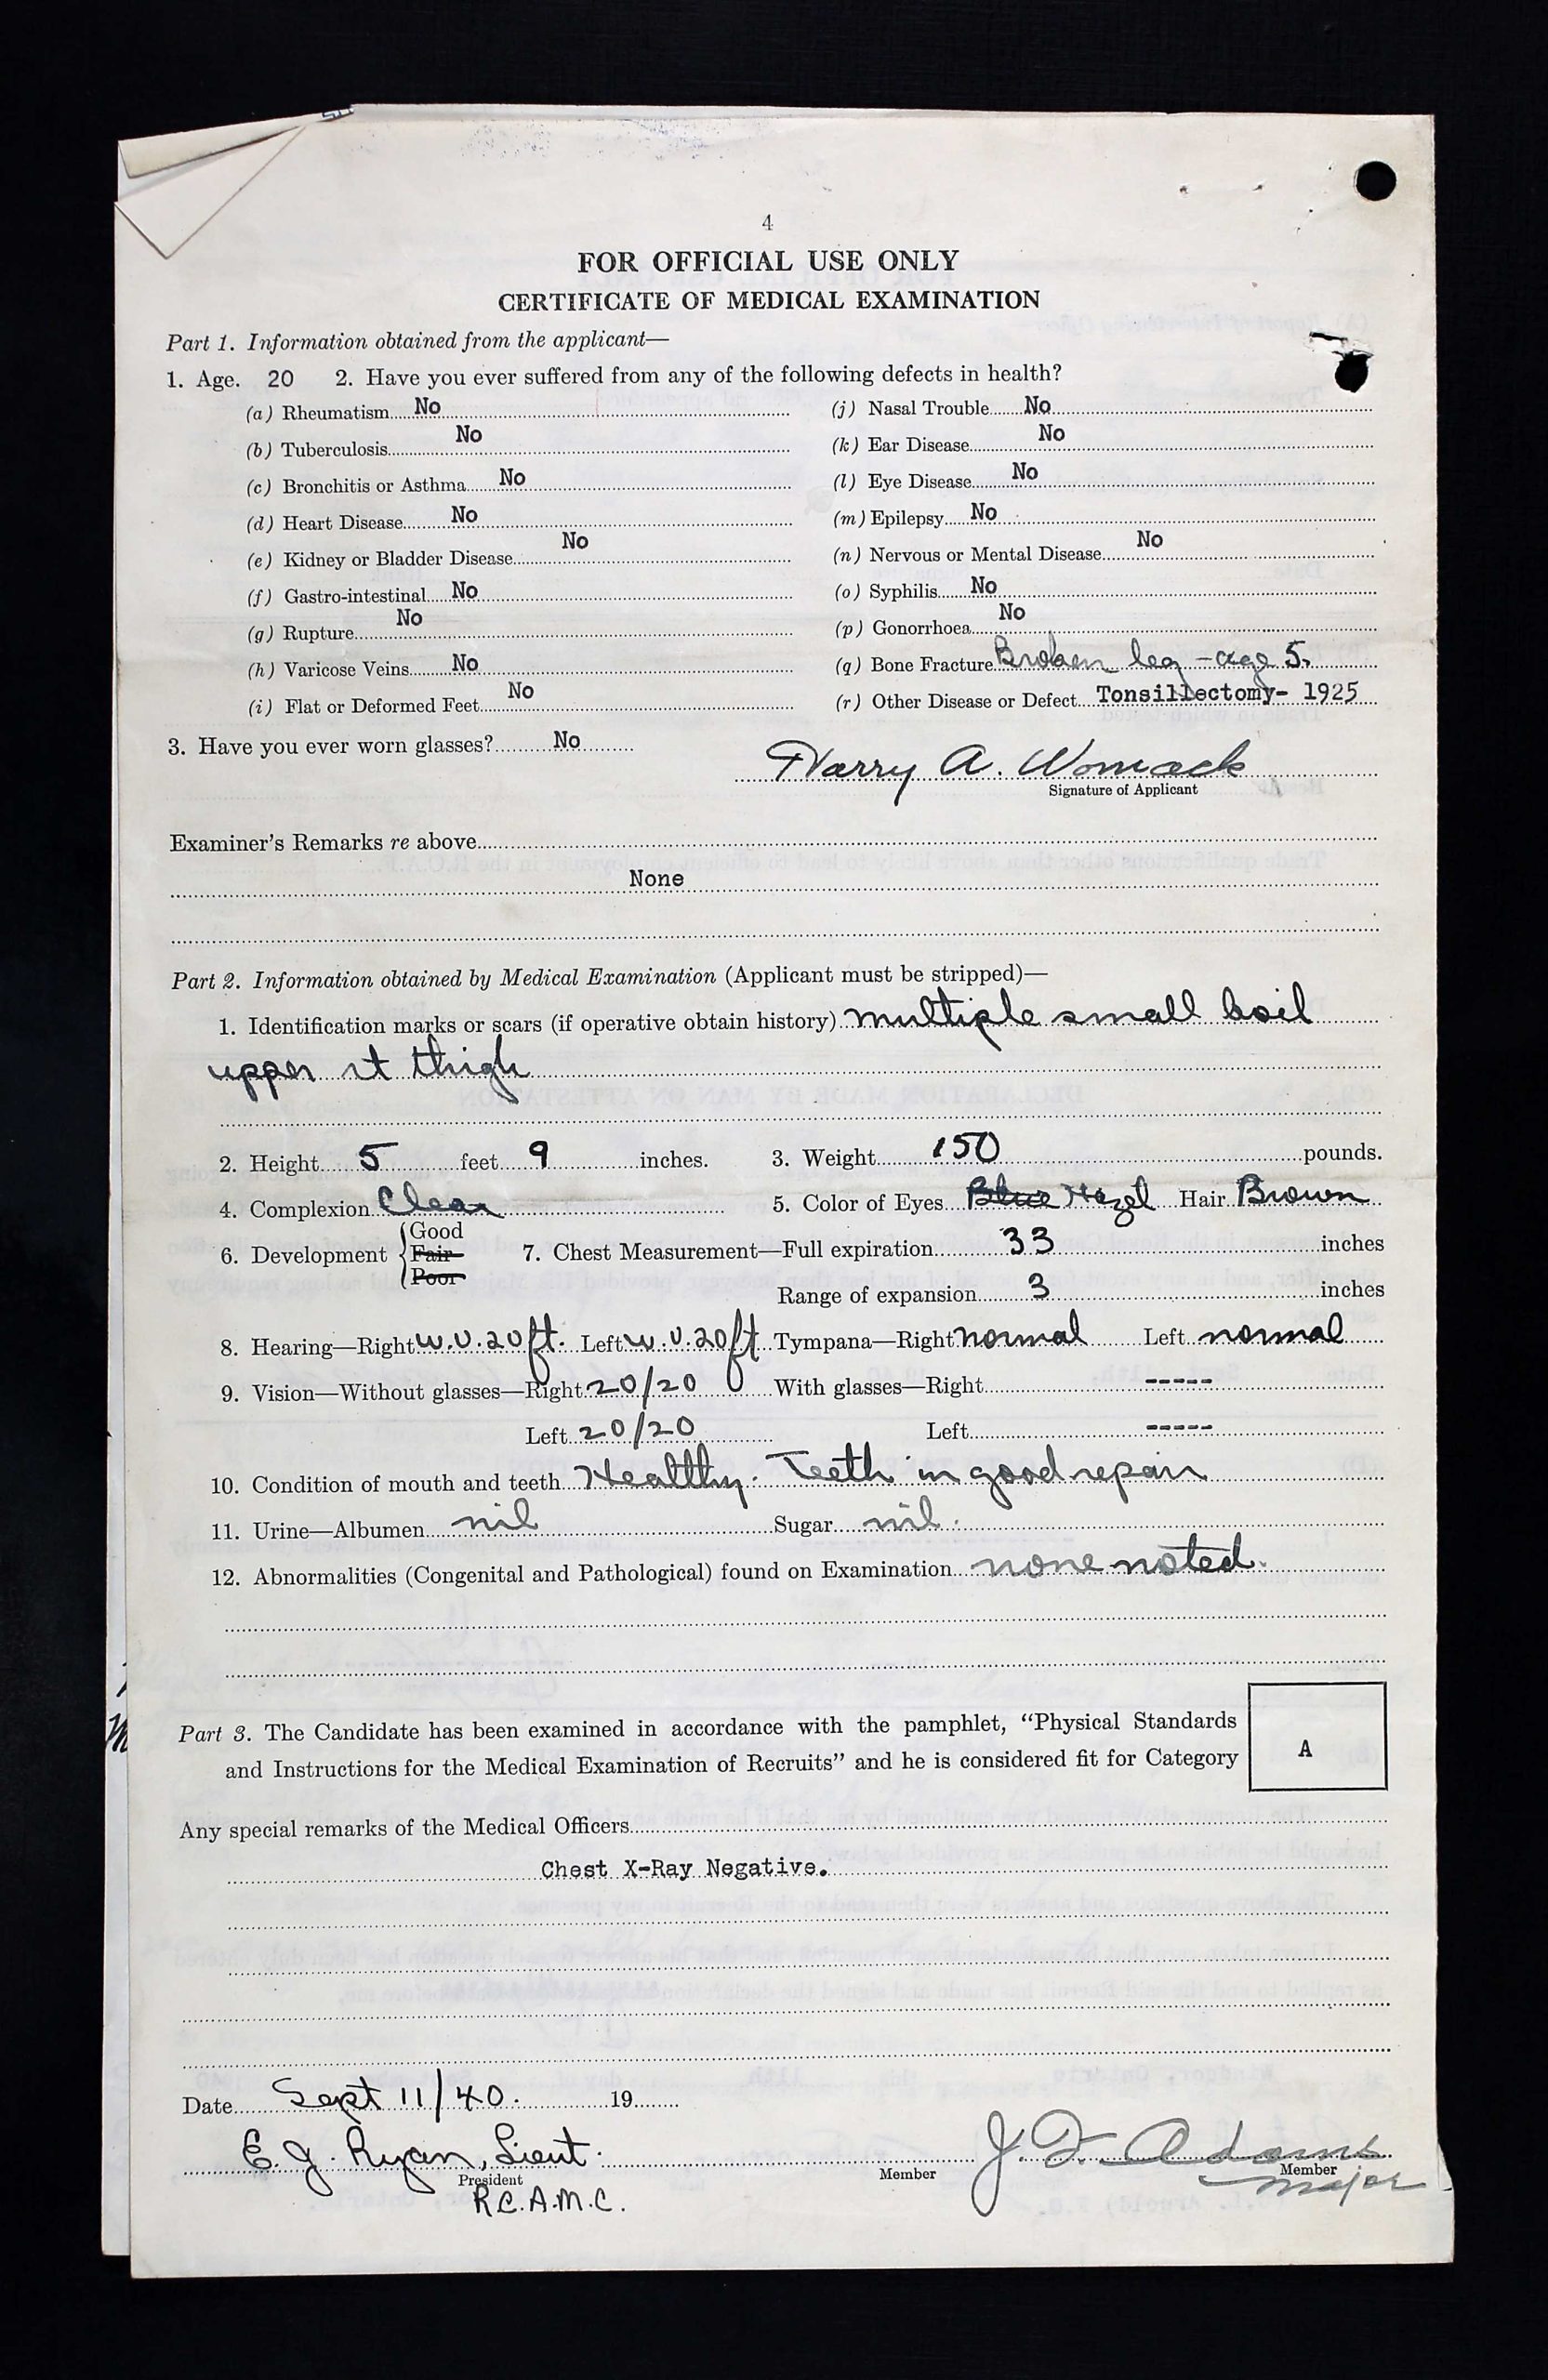 4
FOR OFFICIAL USE ONLY
CERTIFICATE OF MEDICAL EXAMINATION
Part 1. Information obtained from the applicant—
1. Age. 20 2. Have you ever suffered from any of the following defects in health?
(a) Rheumatism No (j) Nasal Trouble No
(b) Tuberculosis No (k) Ear Disease No
(c) Bronchitis or Asthma No (l) Eye Disease No
(d) Heart Disease No (m) Epilepsy No
(e) Kidney or Bladder Disease No (n) Nervous or Mental Disease No
(f) Gastro-intestinal No (o) Syphilis No
(g) Rupture No (p) Gonorrhoea No
(h) Varicose Veins No (q) Bone Fracture Broken leg - age 5.
(i) Flat or Deformed Feet No (r) Other Disease or Defect Tonsillectomy- 1925
3. Have you ever worn glasses? No
Harry A. Womack
Signature of Applicant
Examiner's Remarks re above
None
Part 2. Information obtained by Medical Examination (Applicant must be stripped)—
1. Identification marks or scars (if operative obtain history) multiple small boil
upper rt thigh
2. Height 5 feet 9 inches. 3. Weight 150 pounds.
4. Complexion Clear 5. Color of Eyes Blue Hazel Hair Brown
6. Development { Good Fair Poor 7. Chest Measurement—Full expiration 33 inches
Range of expansion 3 inches
8. Hearing—Right w.v. 20 ft. Left w.v. 20 ft Tympana—Right normal Left normal
9. Vision—Without glasses—Right 20/20 With glasses—Right -----
Left 20/20 Left -----
10. Condition of mouth and teeth Healthy. Teeth in good repair
11. Urine—Albumen nil Sugar nil.
12. Abnormalities (Congenital and Pathological) found on Examination none noted.
Part 3. The Candidate has been examined in accordance with the pamphlet, “Physical Standards
and Instructions for the Medical Examination of Recruits” and he is considered fit for Category A
Any special remarks of the Medical Officers
Chest X-Ray Negative.
Date Sept 11/40. 19
E. J. Ryan, Lieut. J. F. Adams
President Member Member
R.C.A.M.C. Major